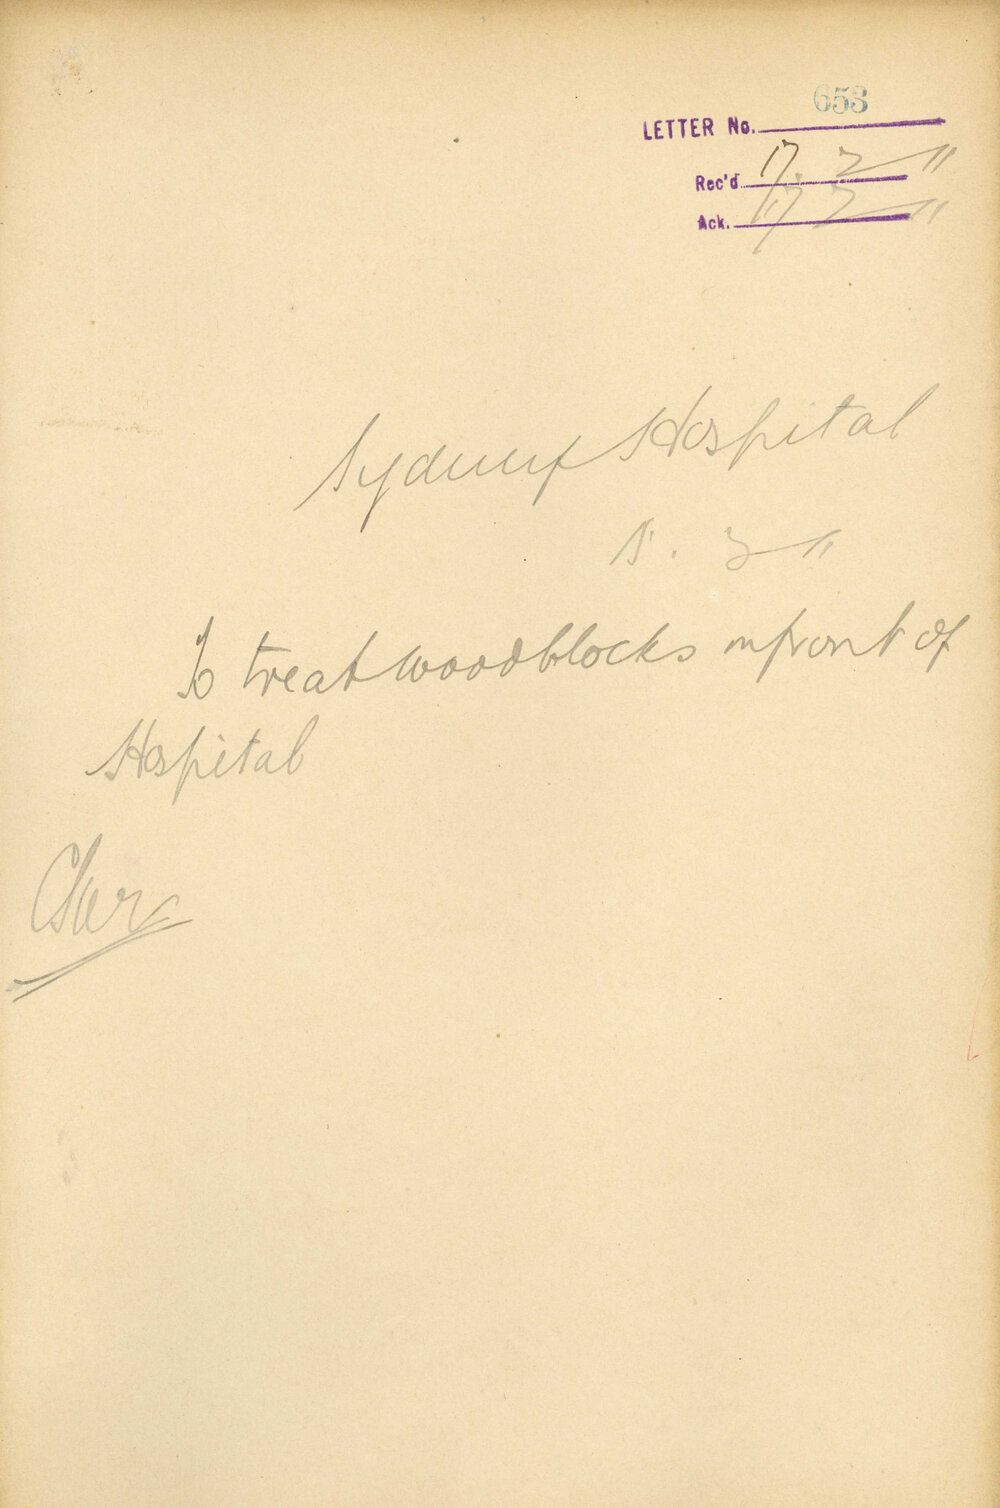 653
LETTER No.
Rec'd 17. 2 11
Ack. 17 2 11
Sydney Hospital
2 11
To treat woodblocks in front of
Hospital